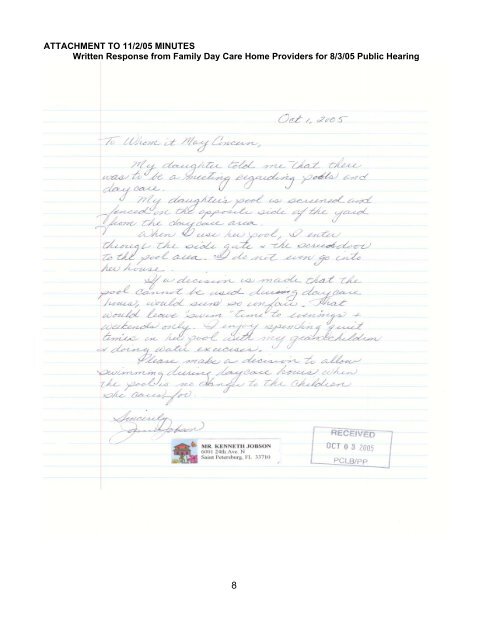 ATTACHMENT TO 11/2/05 MINUTES
Written Response from Family Day Care Home Providers for 8/3/05 Public Hearing
Oct 1, 2005
To Whom it May Concern,
My daughter told me that there
was to be a meeting regarding pools and
day care.
My daughter's pool is screened and
fenced on the opposite side of the yard
from the daycare area.
When I use her pool, I enter
through the side gate & the screendoor
to the pool area. I do not even go into
her house.
If a decision is made that the
pool cannot be used during daycare
hours, would seem so unfair. That
would leave "swim" time to evenings +
weekends only. I enjoy spending quiet
times in her pool with my grandchildren
& doing water exercises.
Please make a decision to allow
swimming during daycare hours when
the pool is no danger to the children
she cares for.
Sincerely
Jobson
MR. KENNETH JOBSON
6001 24th Ave. N
Saint Petersburg, FL 33710
RECEIVED
OCT 03 2005
PCLB/PP
8